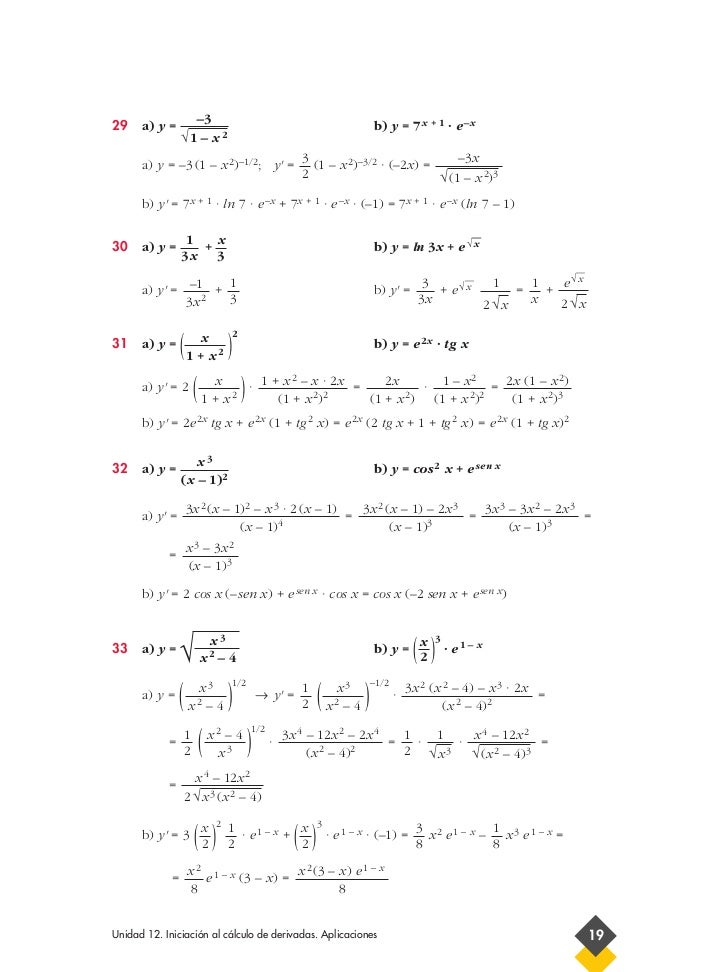 29 a) y = –3/√(1 – x²) b) y = 7^(x + 1) · e^(–x)
a) y = –3(1 – x²)^(–1/2); y' = 3/2 (1 – x²)^(–3/2) · (–2x) = –3x/√((1 – x²)³)
b) y' = 7^(x + 1) · ln 7 · e^(–x) + 7^(x + 1) · e^(–x) · (–1) = 7^(x + 1) · e^(–x) (ln 7 – 1)
30 a) y = 1/(3x) + x/3 b) y = ln 3x + e^(√x)
a) y' = –1/(3x²) + 1/3 b) y' = 3/(3x) + e^(√x) 1/(2√x) = 1/x + e^(√x)/(2√x)
31 a) y = (x/(1 + x²))² b) y = e^(2x) · tg x
a) y' = 2 (x/(1 + x²)) · (1 + x² – x · 2x)/(1 + x²)² = 2x/(1 + x²) · (1 – x²)/(1 + x²)² = 2x (1 – x²)/(1 + x²)³
b) y' = 2e^(2x) tg x + e^(2x) (1 + tg² x) = e^(2x) (2 tg x + 1 + tg² x) = e^(2x) (1 + tg x)²
32 a) y = x³/(x – 1)² b) y = cos² x + e^(sen x)
a) y' = (3x²(x – 1)² – x³ · 2(x – 1))/(x – 1)⁴ = (3x²(x – 1) – 2x³)/(x – 1)³ = (3x³ – 3x² – 2x³)/(x – 1)³ =
= (x³ – 3x²)/(x – 1)³
b) y' = 2 cos x (–sen x) + e^(sen x) · cos x = cos x (–2 sen x + e^(sen x))
33 a) y = √(x³/(x² – 4)) b) y = (x/2)³ · e^(1 – x)
a) y = (x³/(x² – 4))^(1/2) → y' = 1/2 (x³/(x² – 4))^(–1/2) · (3x² (x² – 4) – x³ · 2x)/(x² – 4)² =
= 1/2 ((x² – 4)/x³)^(1/2) · (3x⁴ – 12x² – 2x⁴)/(x² – 4)² = 1/2 · 1/√(x³) · (x⁴ – 12x²)/√((x² – 4)³) =
= (x⁴ – 12x²)/(2√(x³(x² – 4)))
b) y' = 3 (x/2)² 1/2 · e^(1 – x) + (x/2)³ · e^(1 – x) · (–1) = 3/8 x² e^(1 – x) – 1/8 x³ e^(1 – x) =
= x²/8 e^(1 – x) (3 – x) = x²(3 – x) e^(1 – x)/8
Unidad 12. Iniciación al cálculo de derivadas. Aplicaciones 19